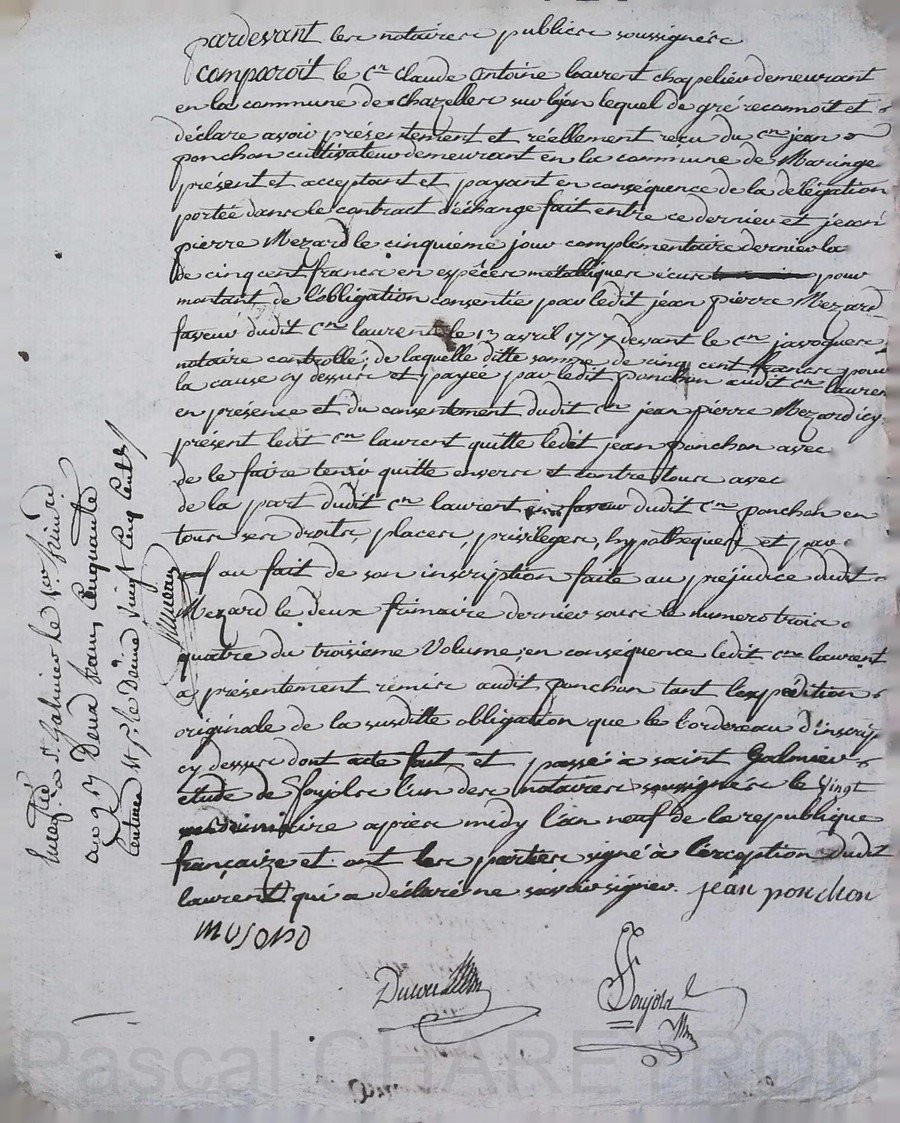 pardevant les notaires publics soussignés
comparoit le cn Claude antoine laurent chapelier demeurant
en la commune de chazelles sur lyon lequel de gré reconnoit et
déclare avoir présentement et réellement reçu du cn jean
ponchon cultivateur demeurant en la commune de Maringe
présent et acceptant et payant en conséquence de la délégation
portée dans le contract d'échange fait entre ce dernier et jean
pierre Mezard le cinquième jour complémentaire dernier la
de cinq cent francs en espèces métalliques écus pour
montant de l'obligation consentie par ledit jean pierre Mezard
faveur dudit cn laurent le 13 avril 1777 devant le cn javogues
notaire controllé; de laquelle ditte somme de cinq cent francs pour
la cause cy dessus et payée par ledit ponchon audit cn lauren
en présence et du consentement dudit cn jean pierre Mezard icy
présent ledit cn laurent quitte ledit jean ponchon avec
de le faire tenir quitte envers et contre tous avec
de la part dudit cn laurent en faveur dudit cn ponchon en
tous ses droits, places, privilèges, hypothèques et par
au fait de son inscription faite au préjudice dudit
Mezard le deux frimaire dernier sous le numero trois
quatre du troisième Volume, en conséquence ledit cn laurent
a présentement remis audit ponchon tant l'expédition
originale de la susditte obligation que le bordereau d'inscrip
cy dessus dont acte fait et passé à saint Galmier
étude de Soujols l'un des notaires soussignés le vingt
frimaire après midy l'an neuf de la republique
françaize et ont les parties signé à l'exception dudit
laurent qui a déclaré ne savoir signer. jean ponchon
MUSOND
Soujols
a St Galmier le
an 9 Deux francs Cinquante
Centimes
Pascal CHARETRON